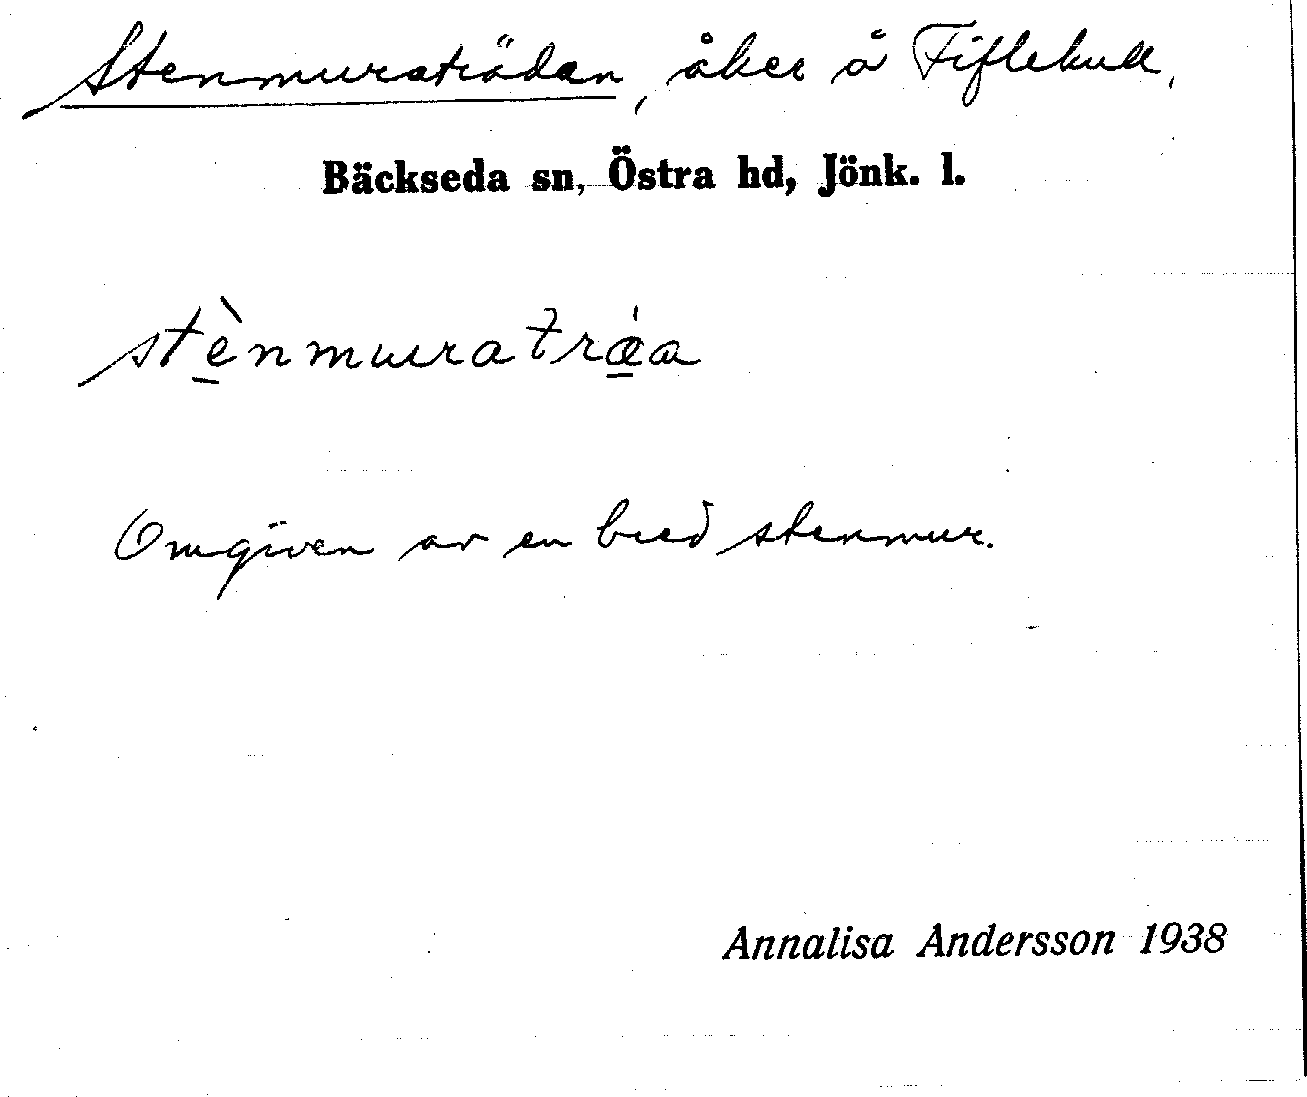 Stenmuraträdan, åker å Fiflekull,
Bäckseda sn, Östra hd, Jönk. l.
stènmuratrǽa
Omgiven av en bred stenmur.
Annalisa Andersson 1938